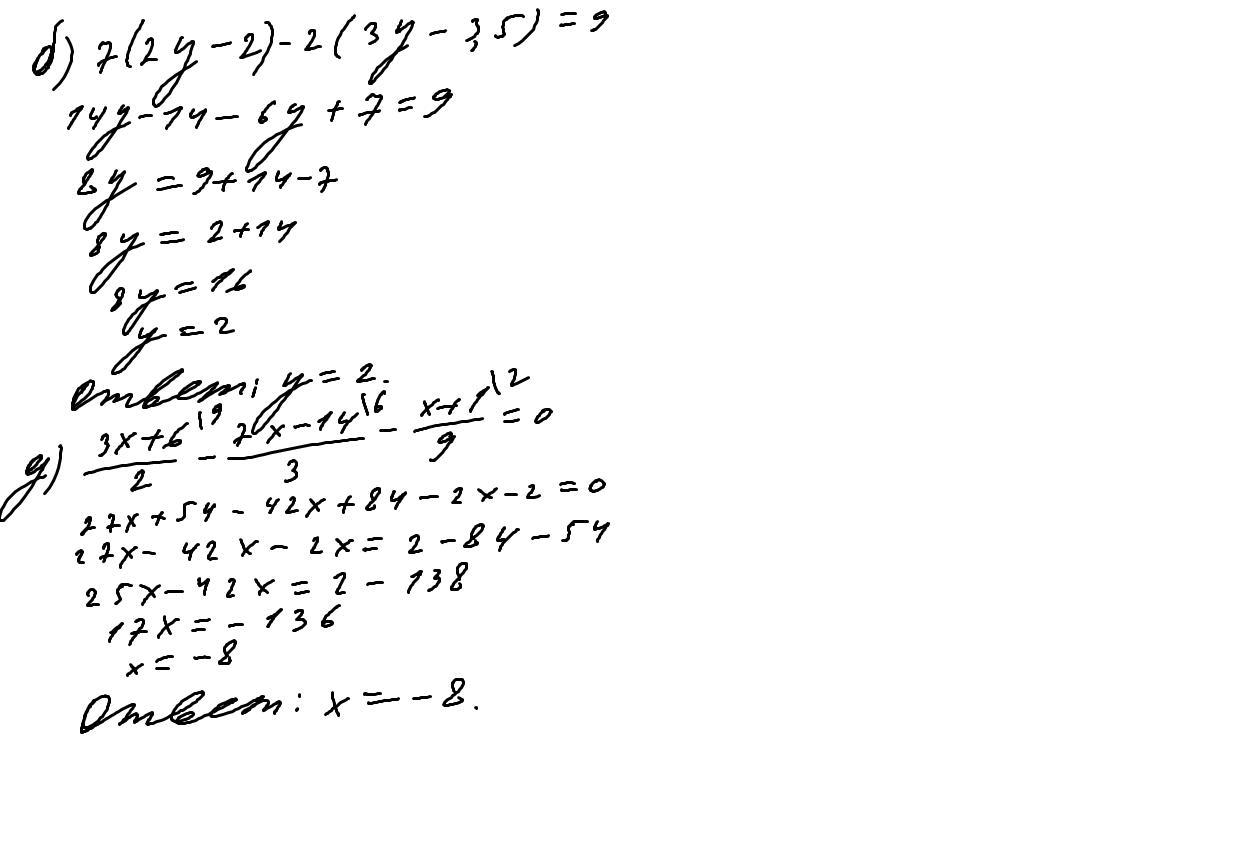 б) 7(2y-2)-2(3y-3,5)=9
14y-14-6y+7=9
8y=9+14-7
8y=2+14
8y=16
y=2
Ответ: y=2.
д) (3x+6)/2 \9 - (7x-14)/3 \6 - (x+1)/9 \2 = 0
27x+54-42x+84-2x-2=0
27x-42x-2x=2-84-54
25x-42x=2-138
17x=-136
x=-8
Ответ: x=-8.